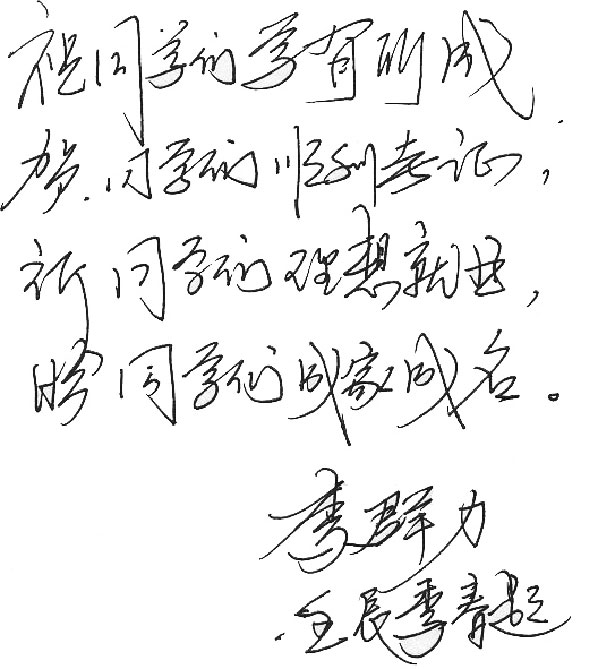 祝同学们学有所成
贺同学们顺利考证，
祈同学们理想就业，
盼同学们成家成名。
李群力
壬辰季春题